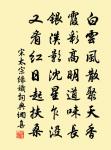 白雲風散聚天香
霞彩高明道味長
銀漢影沈星乍沒
又看紅日起扶桑
宋太宗緣識